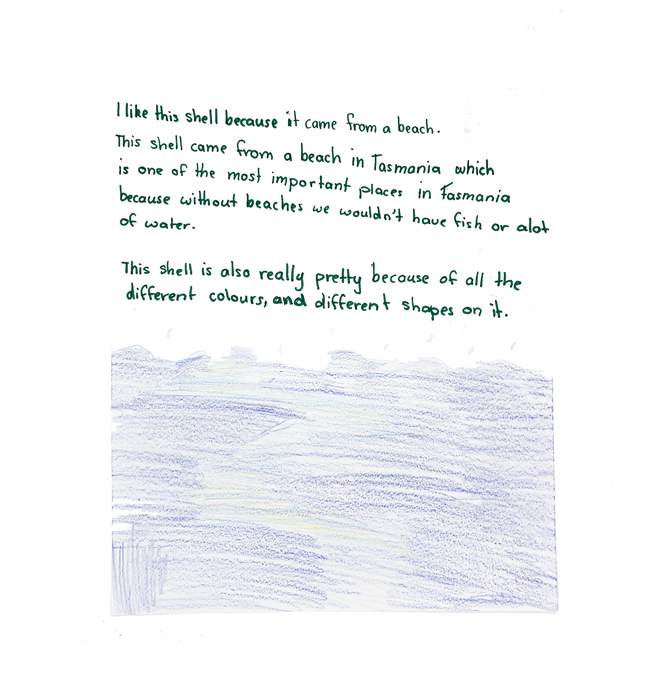 I like this shell because it came from a beach.
This shell came from a beach in Tasmania which
is one of the most important places in Tasmania
because without beaches we wouldn't have fish or alot
of water.
This shell is also really pretty because of all the
different colours, and different shapes on it.